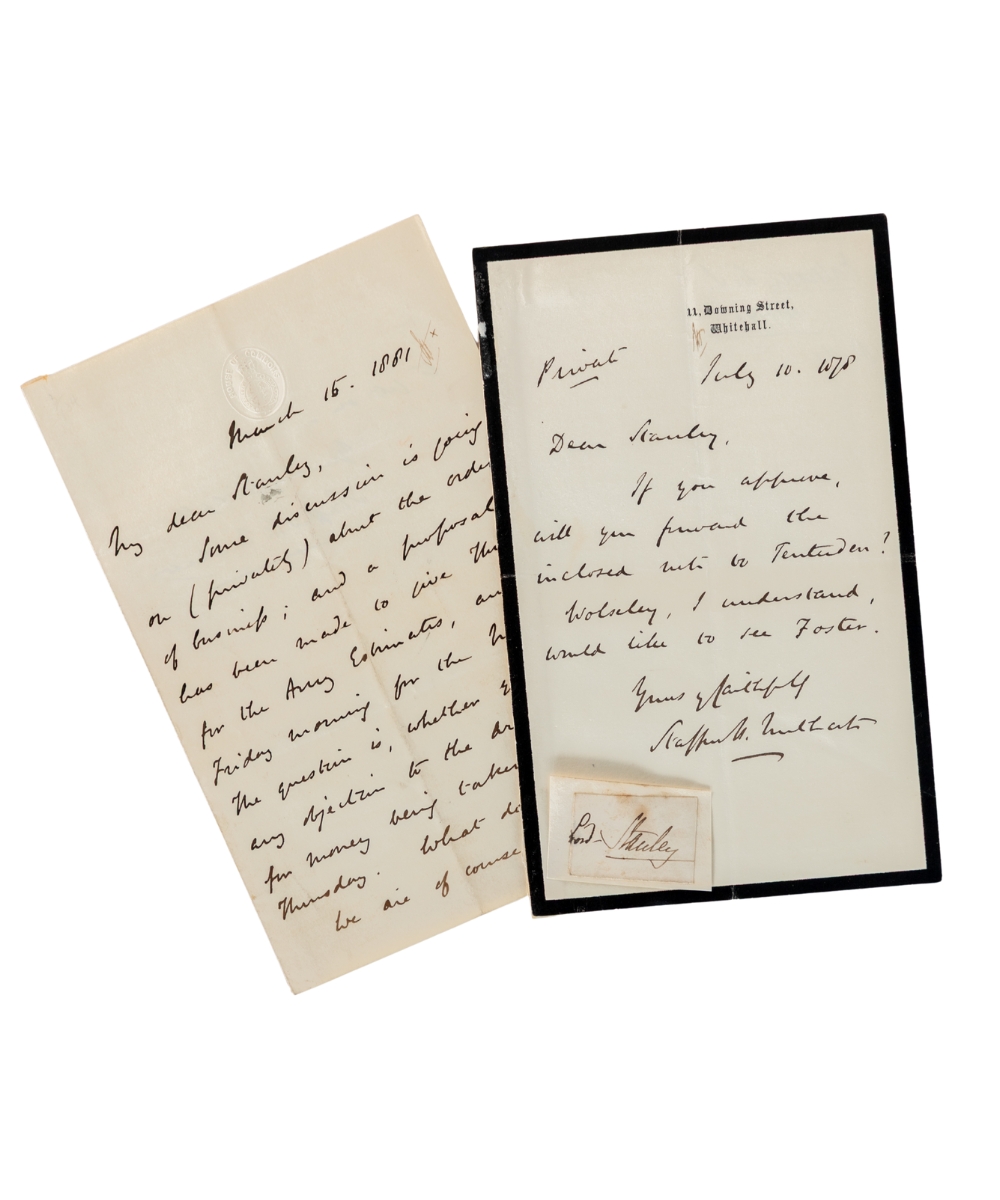 March 15. 1881
My dear Stanley,
Some discussion is going
on (privately) about the order
of business; and a proposal
has been made to give Thu
for the Army Estimates, an
Friday morning for the
The question is, whether
any objection to the
for money being taken
Thursday. What do
We are of course
11, Downing Street,
Whitehall.
Private
July 10. 1878
Dear Stanley,
If you approve,
will you forward the
inclosed note to Tenterden?
Wolseley, I understand,
would like to see Foster.
Yours faithfully
Stafford H. Northcote
Lord Stanley